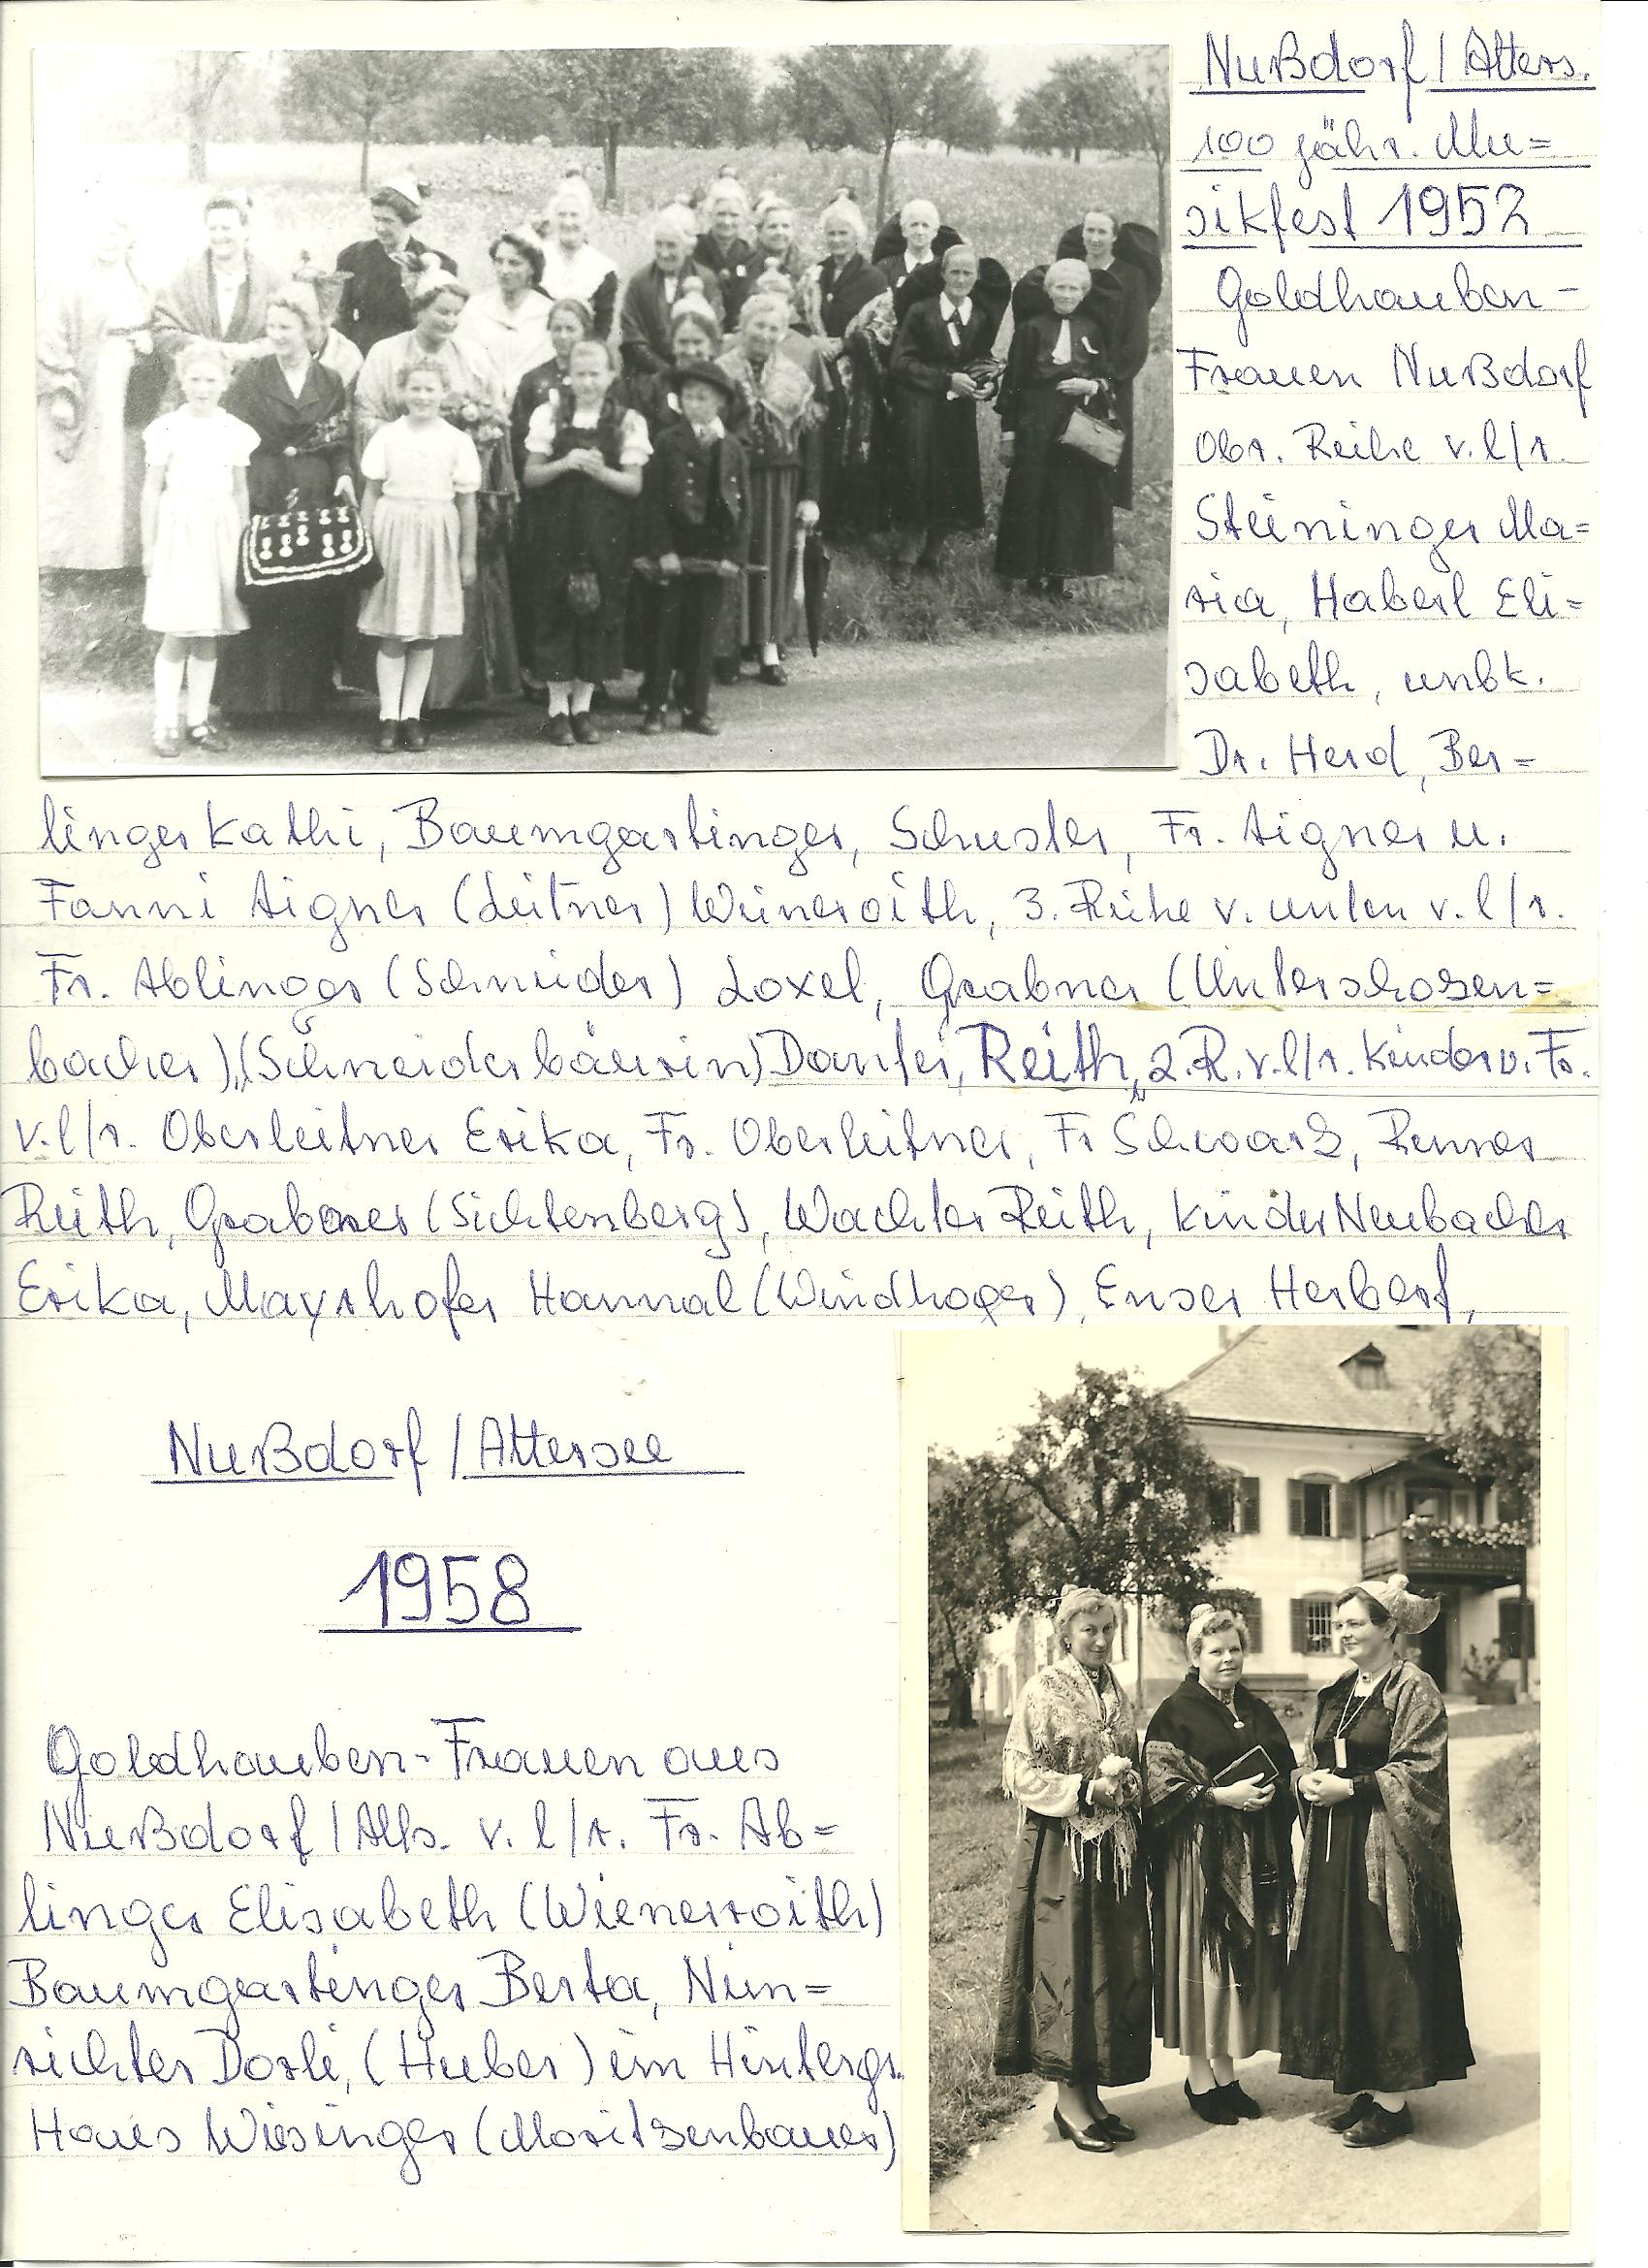 Nußdorf / Atters.
100 jähr. Mu=
sikfest 1952
Goldhauben-
Frauen Nußdorf
Obr. Reihe v. l/r.
Steininger Ma=
ria, Haberl Eli=
sabeth, unbk.
Dr. Herd, Ber=
linger Kathi, Baumgartinger, Schuster, Fr. Aigner u.
Fanni Aigner (Leitner) Weineroith, 3. Reihe v. unten v. l/r.
Fr. Ablinger (Schneider) Loxel, Grabner (Unter
bacher), (Schneiderbäurin) Danter, Reith, 2. R. v. l/r. Kinder v. Fr.
v. l/r. Oberleitner Erika, Fr. Oberleitner, Fr Schwarz, Renner
Reith, Grabner (Sichtenberg), Wachter Reith, Kinder Neubacher
Erika, Mayrhofer Hannal (Windhager), Enser Herbert,
Nußdorf / Attersee
1958
Goldhauben-Frauen aus
Nußdorf / Atts. v. l/r. Fr. Ab=
linger Elisabeth (Wieneroith)
Baumgartinger Berta, Nun=
richter Dorli, (Huber) im Hintergr.
Haus Wiesinger (Moritzenbauer)